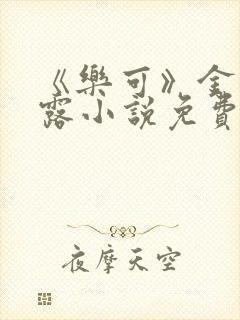 《樂可》金
露小說免費
夜摩天空